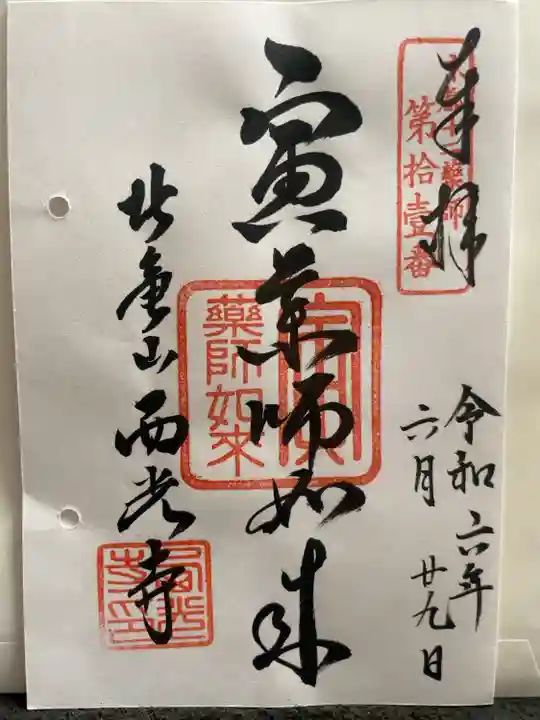 奉拝
藥師
第拾壹番
令和六年
六月廿九日
寅薬師如来
寅
藥師如来
山西光寺
西光
寺印